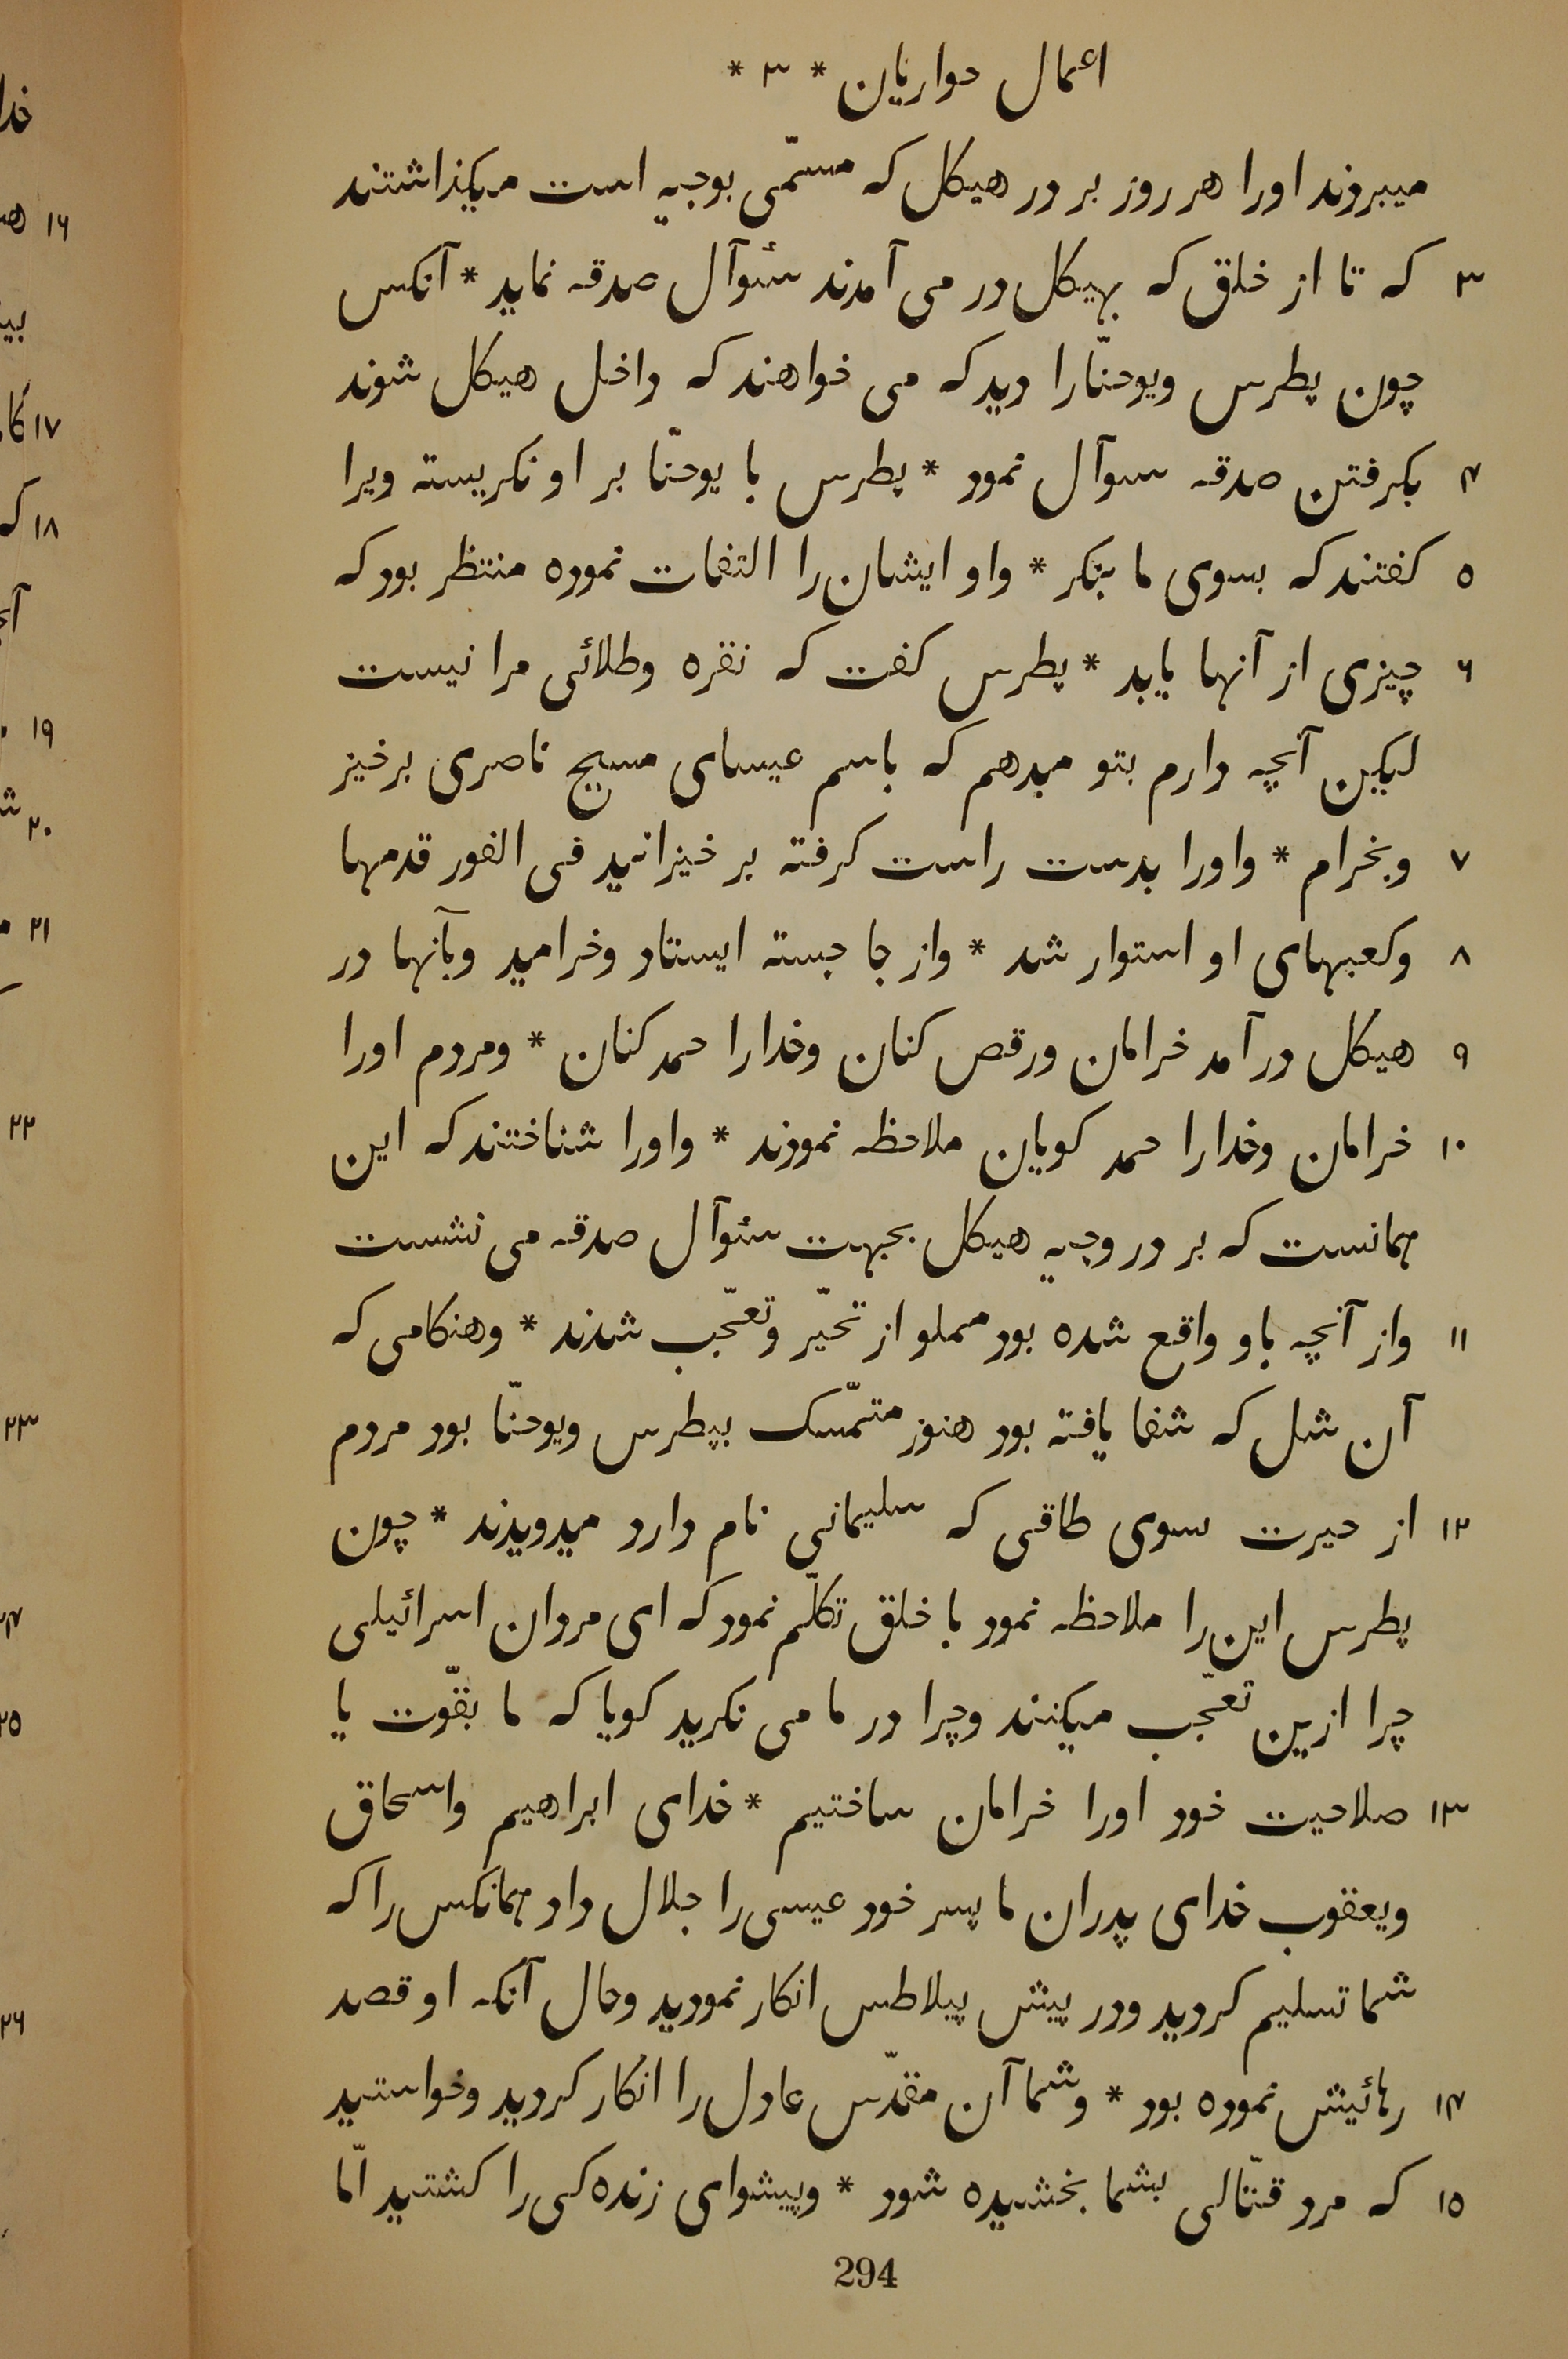 اعمال حواریان * ۳ *
میبردند اورا هر روز بر در هیکل که مسمّی بوجیه است میکذاشتند
۳ که تا از خلق که بهیکل در می آمدند سئوآل صدقه نماید * آنکس
چون پطرس ویوحنّارا دید که می خواهند که داخل هیکل شوند
۴ بکرفتن صدقه سوآل نمود * پطرس با یوحنّا بر او نکریسته ویرا
۵ کفتند که بسوی ما بنکر * واو ایشان را التفات نموده منتظر بود که
۶ چیزی از آنها یابد * پطرس کفت که نقره وطلائی مرا نیست
لیکین آنچه دارم بتو میدهم که باسم عیسای مسیح ناصری برخیز
۷ وبخرام * واورا بدست راست کرفته بر خیزانید فی الفور قدمها
۸ وکعبهای او استوار شد * واز جا جسته ایستاد وخرامید وبآنها در
۹ هیکل در آمد خرامان ورقص کنان وخدارا حمد کنان * ومردم اورا
۱۰ خرامان وخدارا حمد کویان ملاحظه نمودند * واورا شناختند که این
همانست که بر در وجیه هیکل بجهت سئوآل صدقه می نشست
۱۱ واز آنچه باو واقع شده بود مملو از تحیّر وتعجّب شدند * وهنکامی که
آن شل که شفا یافته بود هنوز متمّسک بپطرس ویوحنّا بود مردم
۱۲ از حیرت سوی طاقی که سلیمانی نام دارد میدویدند * چون
پطرس این را ملاحظه نمود با خلق تکلّم نمود که ای مردان اسرائیلی
چرا ازین تعجّب میکنند وچرا در ما می نکرید کویا که ما بقوّت یا
۱۳ صلاحیت خود اورا خرامان ساختیم * خدای ابراهیم واسحاق
ویعقوب خدای پدران ما پسر خود عیسی را جلال داد همانکس را که
شما تسلیم کردید ودر پیش پیلاطس انکار نمودید وحال آنکه او قصد
۱۴ رهائیش نموده بود * وشما آن مقدّس عادل را انکار کردید وخواستید
۱۵ که مرد قتّالی بشما بخشیده شود * وپیشوای زنده کی را کشتید امّا
294